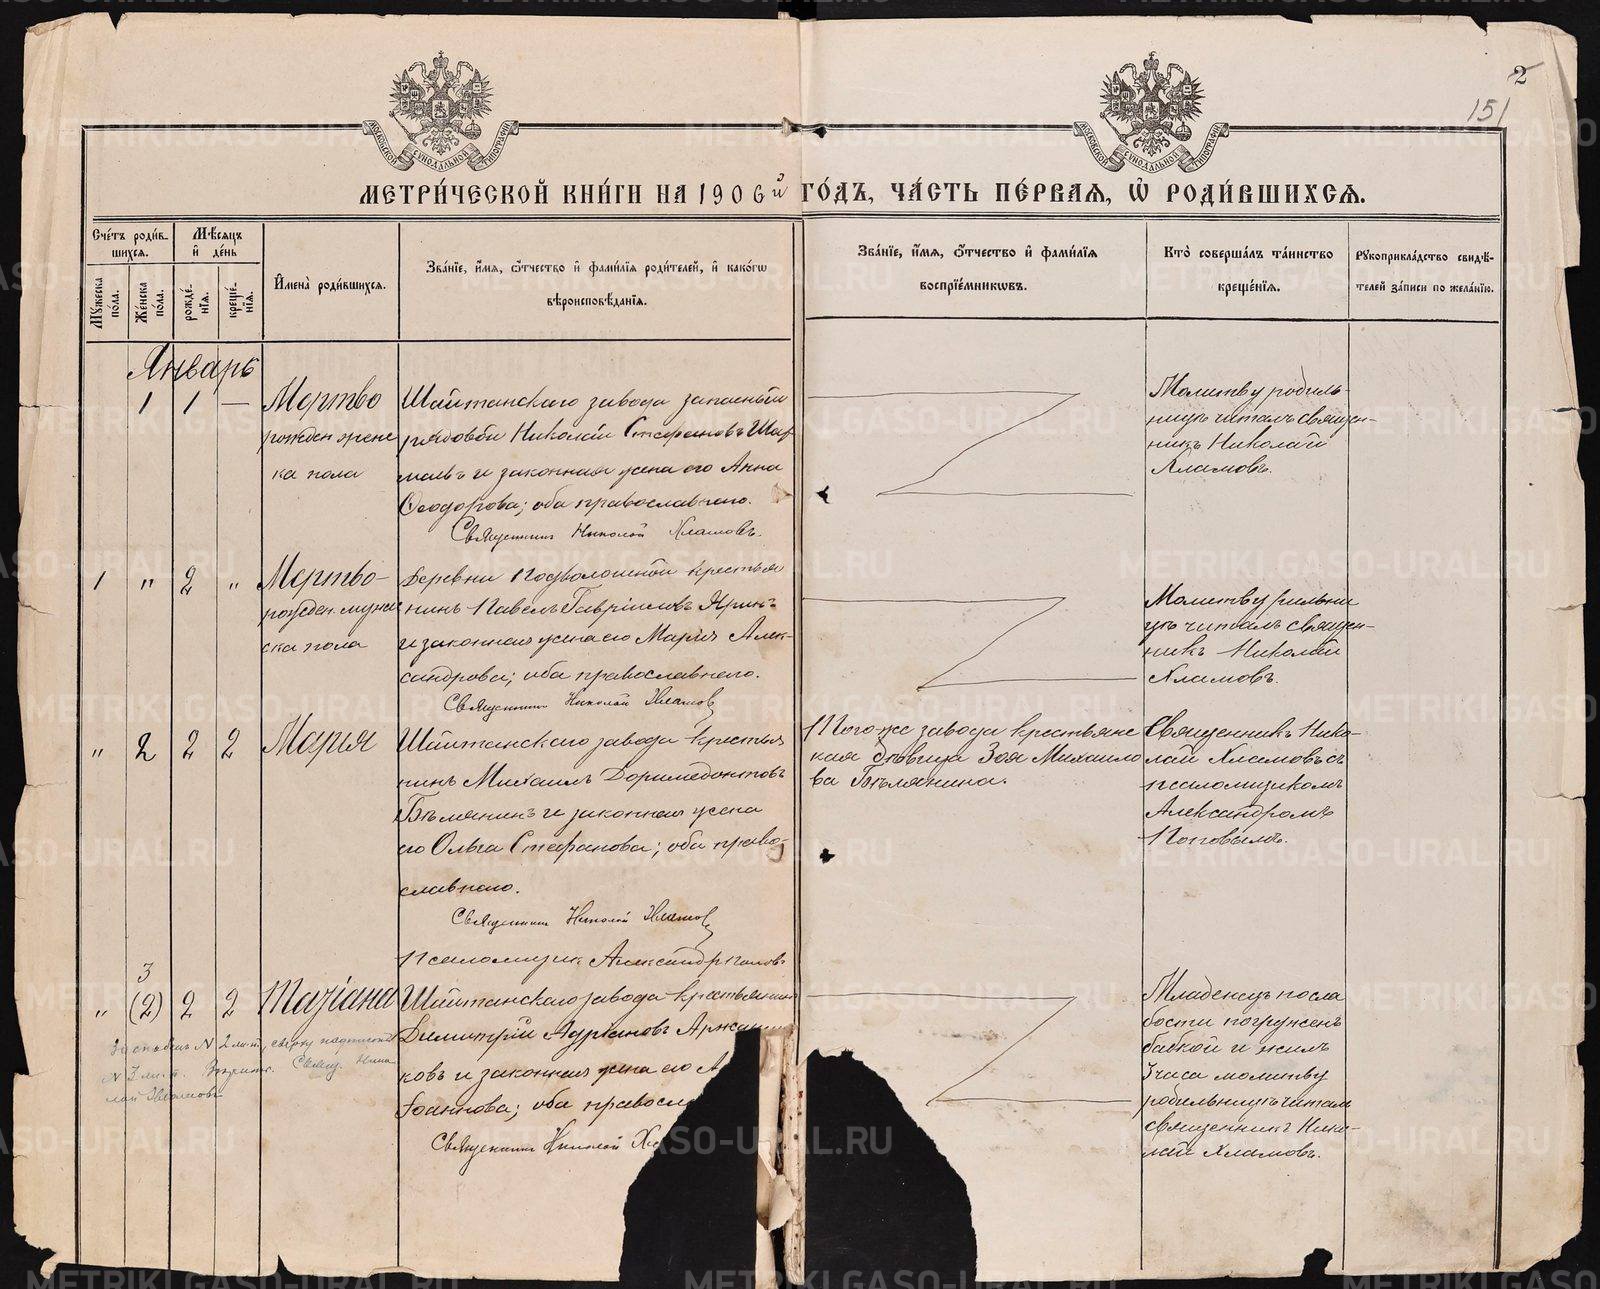 2
151
МЕТРИ́ЧЕСКОЙ КНИ́ГИ НА 1906й ГО́ДЪ, ЧА́СТЬ ПЕ́РВАЯ, Ѽ РОДИ́ВШИХСЯ.
Сче́тъ роди́в-
шихся.
Му́жеска по́ла.
Же́нска по́ла.
Мѣ́сяцъ
и҆ де́нь
рожде́нїя.
креще́нїя.
И҆мена̀ роди́вшихся.
Зва́нїе, и҆́мя, ѻ҆́тчество и҆ фами́лїя роди́телей, и҆ како́гѡ
вѣроисповѣ́данїя.
Зва́нїе, и҆́мя, ѻ҆́тчество и҆ фами́лїя
воспрїе́мникѡвъ.
Кто̀ соверша́лъ та́инство
креще́нїя.
Рукоприкла́дство свидѣ́-
телей за́писи по жела́нїю.
Январь
1 1 — Мертво
рожден жене
ка пола
Шайтанскаго завода запасный
рядовой Николай Стефановъ
и законная жена его Анна
Ѳеодорова; оба православнаго.
Священник Николай Хламовъ.
Молитву родиль-
ницѣ читалъ священ-
никъ Николай
Хламовъ.
1 " 2 " Мертво-
рожден. мужс
ска пола
Деревни Подволошной крестья
нинъ Павелъ Гаврииловъ
и законная жена его Марія Алек-
сандрова; оба православнаго.
Священник Николай Хламов
Молитву
цѣ читалъ священ-
никъ Николай
Хламовъ.
" 2 2 2 Марія
Шайтанскаго завода крестья
нинъ Михаилъ Доримедонтовъ
Бѣлянинъ и законная жена
его Ольга Стефанова; оба право-
славнаго.
Священник Николай Хламов
Псаломщик Александр Попов
Того же завода крестьянс
кая дѣвица Зоя Михаило
ва Бѣлянина.
Священникъ Нико-
лай Хламовъ съ
псаломщикомъ
Александромъ
Поповымъ.
3
" (2) 2 2 Татіана
Шайтанскаго завода крестьянин
Димитрій Адріановъ
ковъ и законная жена его А
Іоаннова; оба правосл
Священник Николай Х
Младенецъ по сла
бости погруженъ
бабкой и жилъ
3 часа молитву
родильницѣ читал
священникъ Нико-
лай Хламовъ.
N 2 сверху
N 3 Свящ. Нико
лай Хламовъ